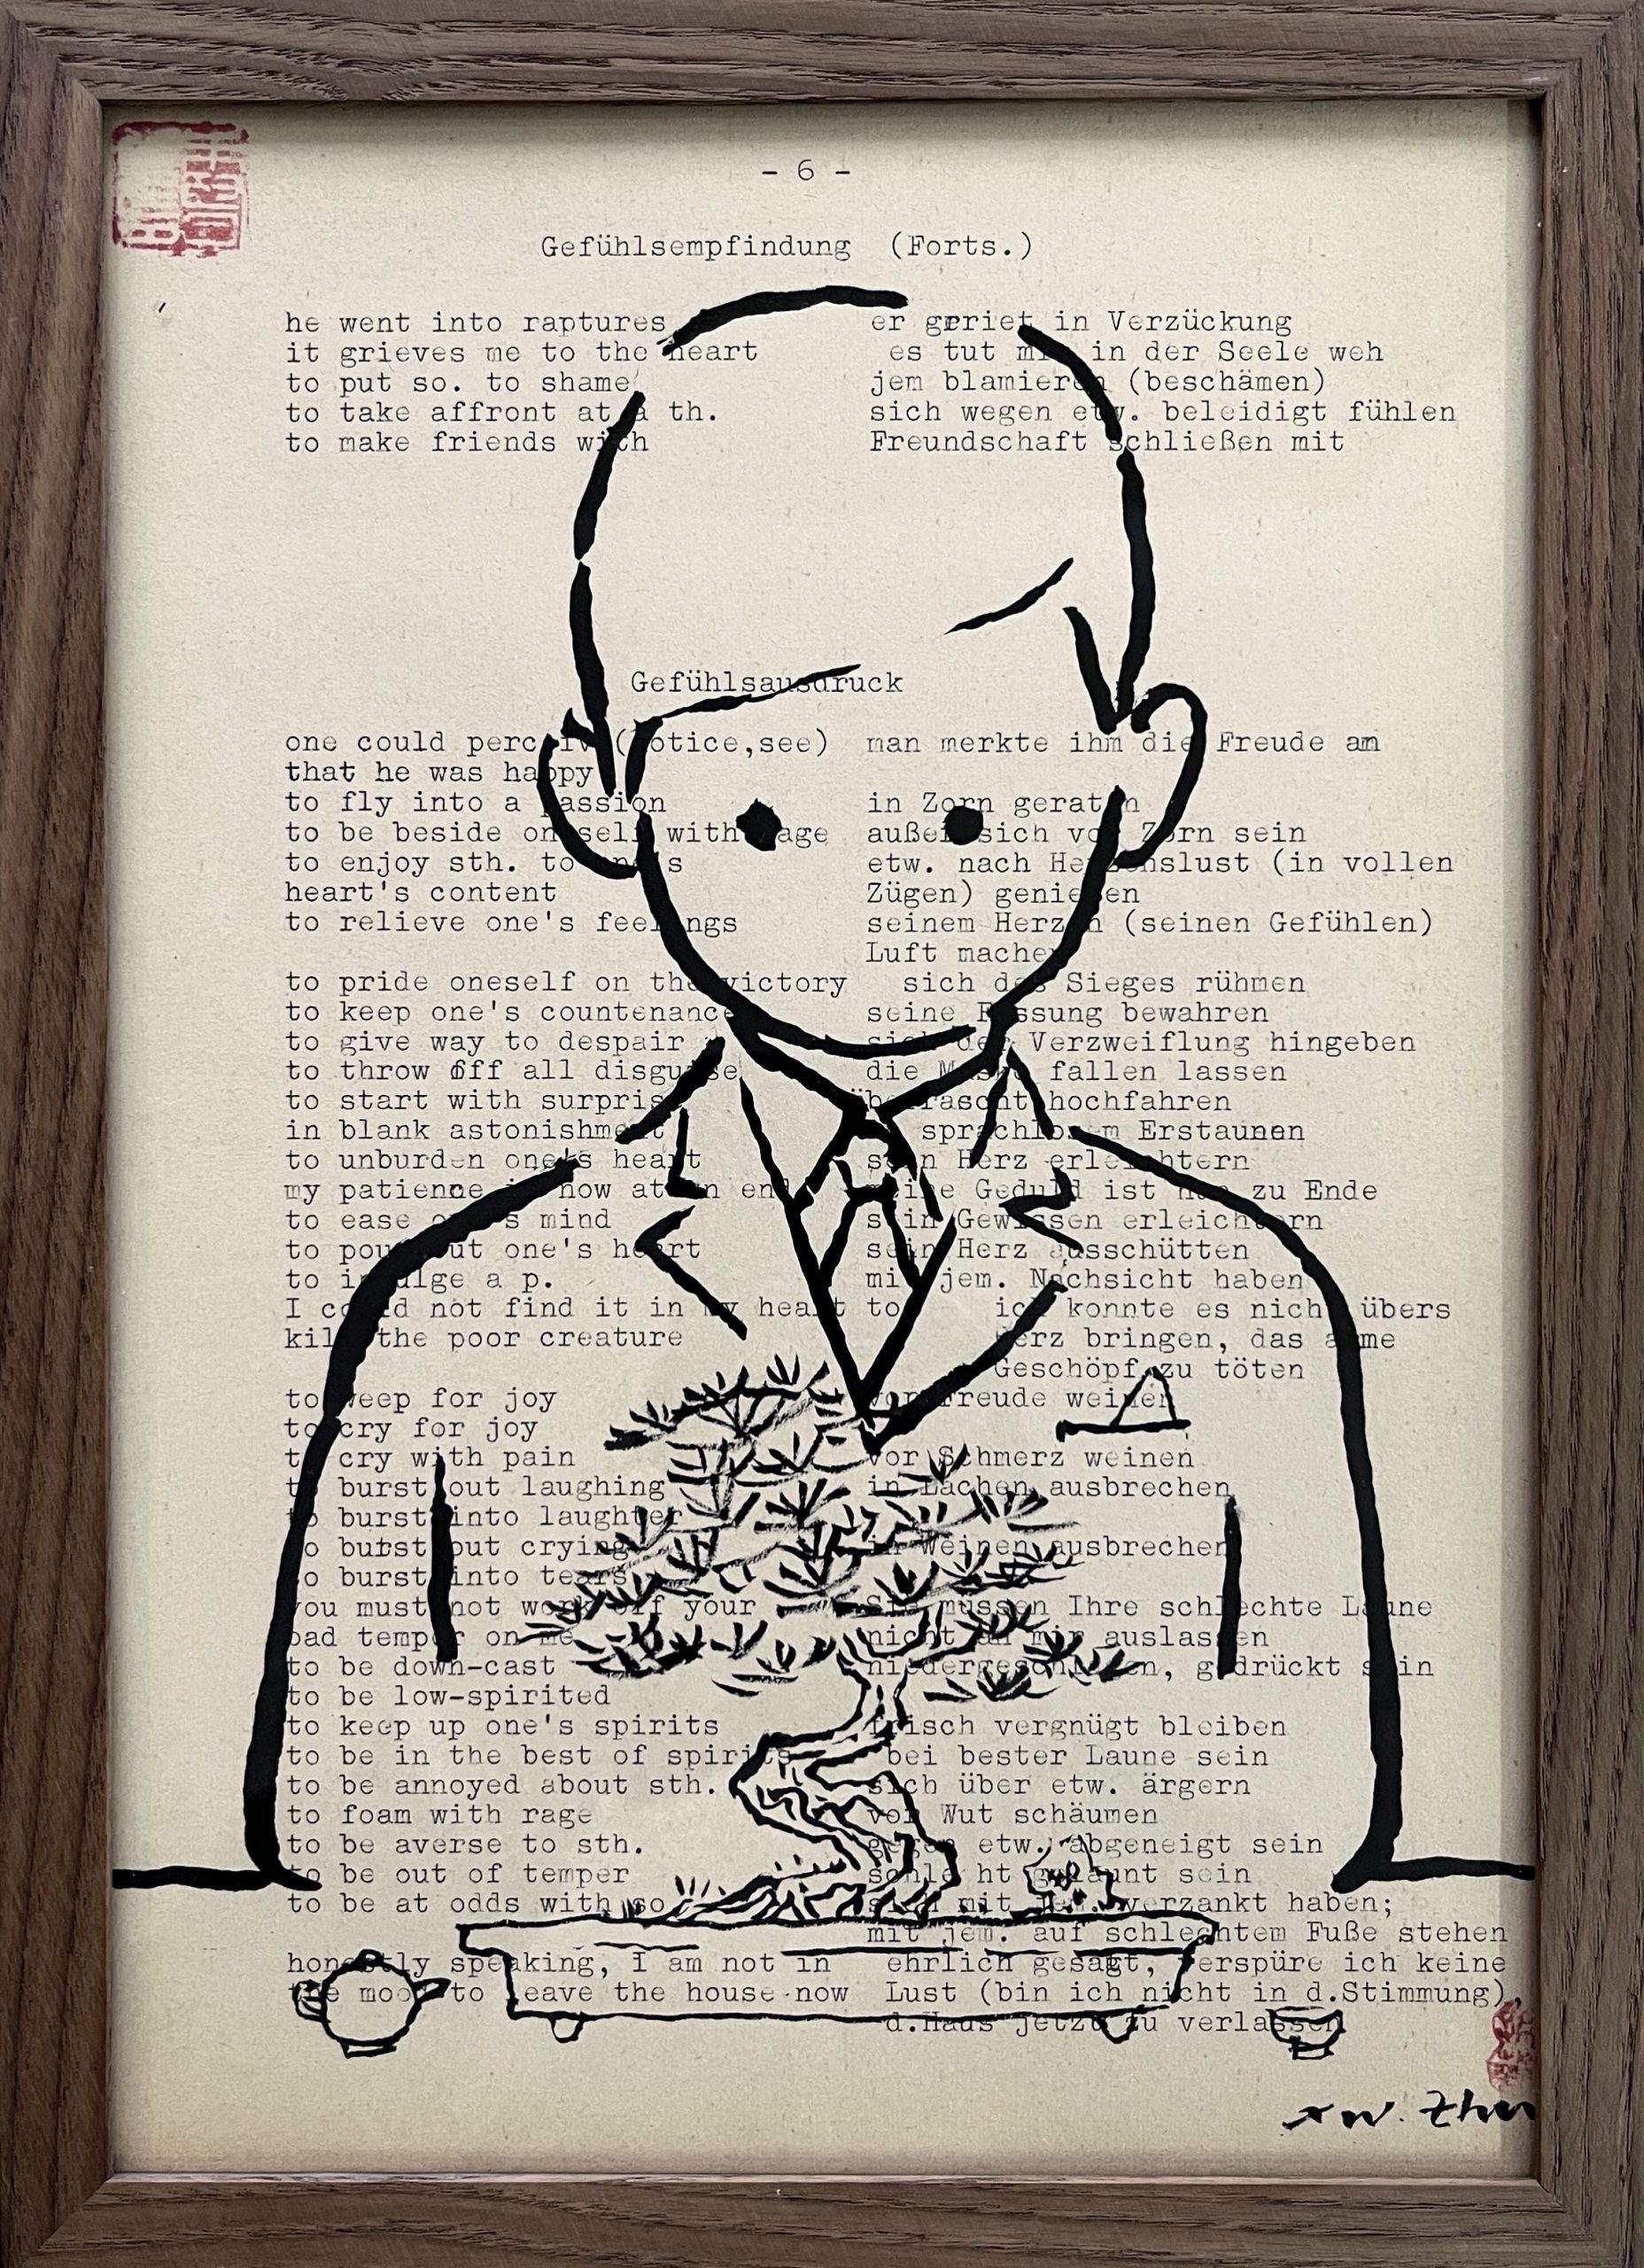 - 6 -
Gefühlsempfindung (Forts.)
he went into raptures er gerriet in Verzückung
it grieves me to the heart es tut mir in der Seele weh
to put so. to shame jem blamieren (beschämen)
to take affront at a th. sich wegen etw. beleidigt fühlen
to make friends with Freundschaft schließen mit
Gefühlsausdruck
one could perceive (notice,see) man merkte ihm die Freude an
that he was happy
to fly into a passion in Zorn geraten
to be beside oneself with rage außer sich vor Zorn sein
to enjoy sth. to one's etw. nach Herzenslust (in vollen
heart's content Zügen) genießen
to relieve one's feelings seinem Herzen (seinen Gefühlen)
Luft machen
to pride oneself on the victory sich des Sieges rühmen
to keep one's countenance seine Fassung bewahren
to give way to despair sich der Verzweiflung hingeben
to throw off all disguise die Maske fallen lassen
to start with surprise überrascht hochfahren
in blank astonishment sprachlosem Erstaunen
to unburden one's heart sein Herz erleichtern
my patience is now at an end meine Geduld ist nun zu Ende
to ease one's mind sein Gewissen erleichtern
to pour out one's heart sein Herz ausschütten
to indulge a p. mit jem. Nachsicht haben
I could not find it in my heart to ich konnte es nicht übers
kill the poor creature Herz bringen, das arme
Geschöpf zu töten
to weep for joy vor Freude weinen
to cry for joy
to cry with pain vor Schmerz weinen
to burst out laughing in Lachen ausbrechen
to burst into laughter
to burst out crying in Weinen ausbrechen
to burst into tears
you must not work off your Sie müssen Ihre schlechte Laune
bad temper on me nicht an mir auslassen
to be down-cast niedergeschlagen, gedrückt sein
to be low-spirited
to keep up one's spirits frisch vergnügt bleiben
to be in the best of spirits bei bester Laune sein
to be annoyed about sth. sich über etw. ärgern
to foam with rage vor Wut schäumen
to be averse to sth. gegen etw. abgeneigt sein
to be out of temper schlecht gelaunt sein
to be at odds with so. sich mit jem. verzankt haben;
mit jem. auf schlechtem Fuße stehen
honestly speaking, I am not in ehrlich gesagt, verspüre ich keine
the mood to leave the house now Lust (bin ich nicht in d.Stimmung),
d.Haus jetzt zu verlassen